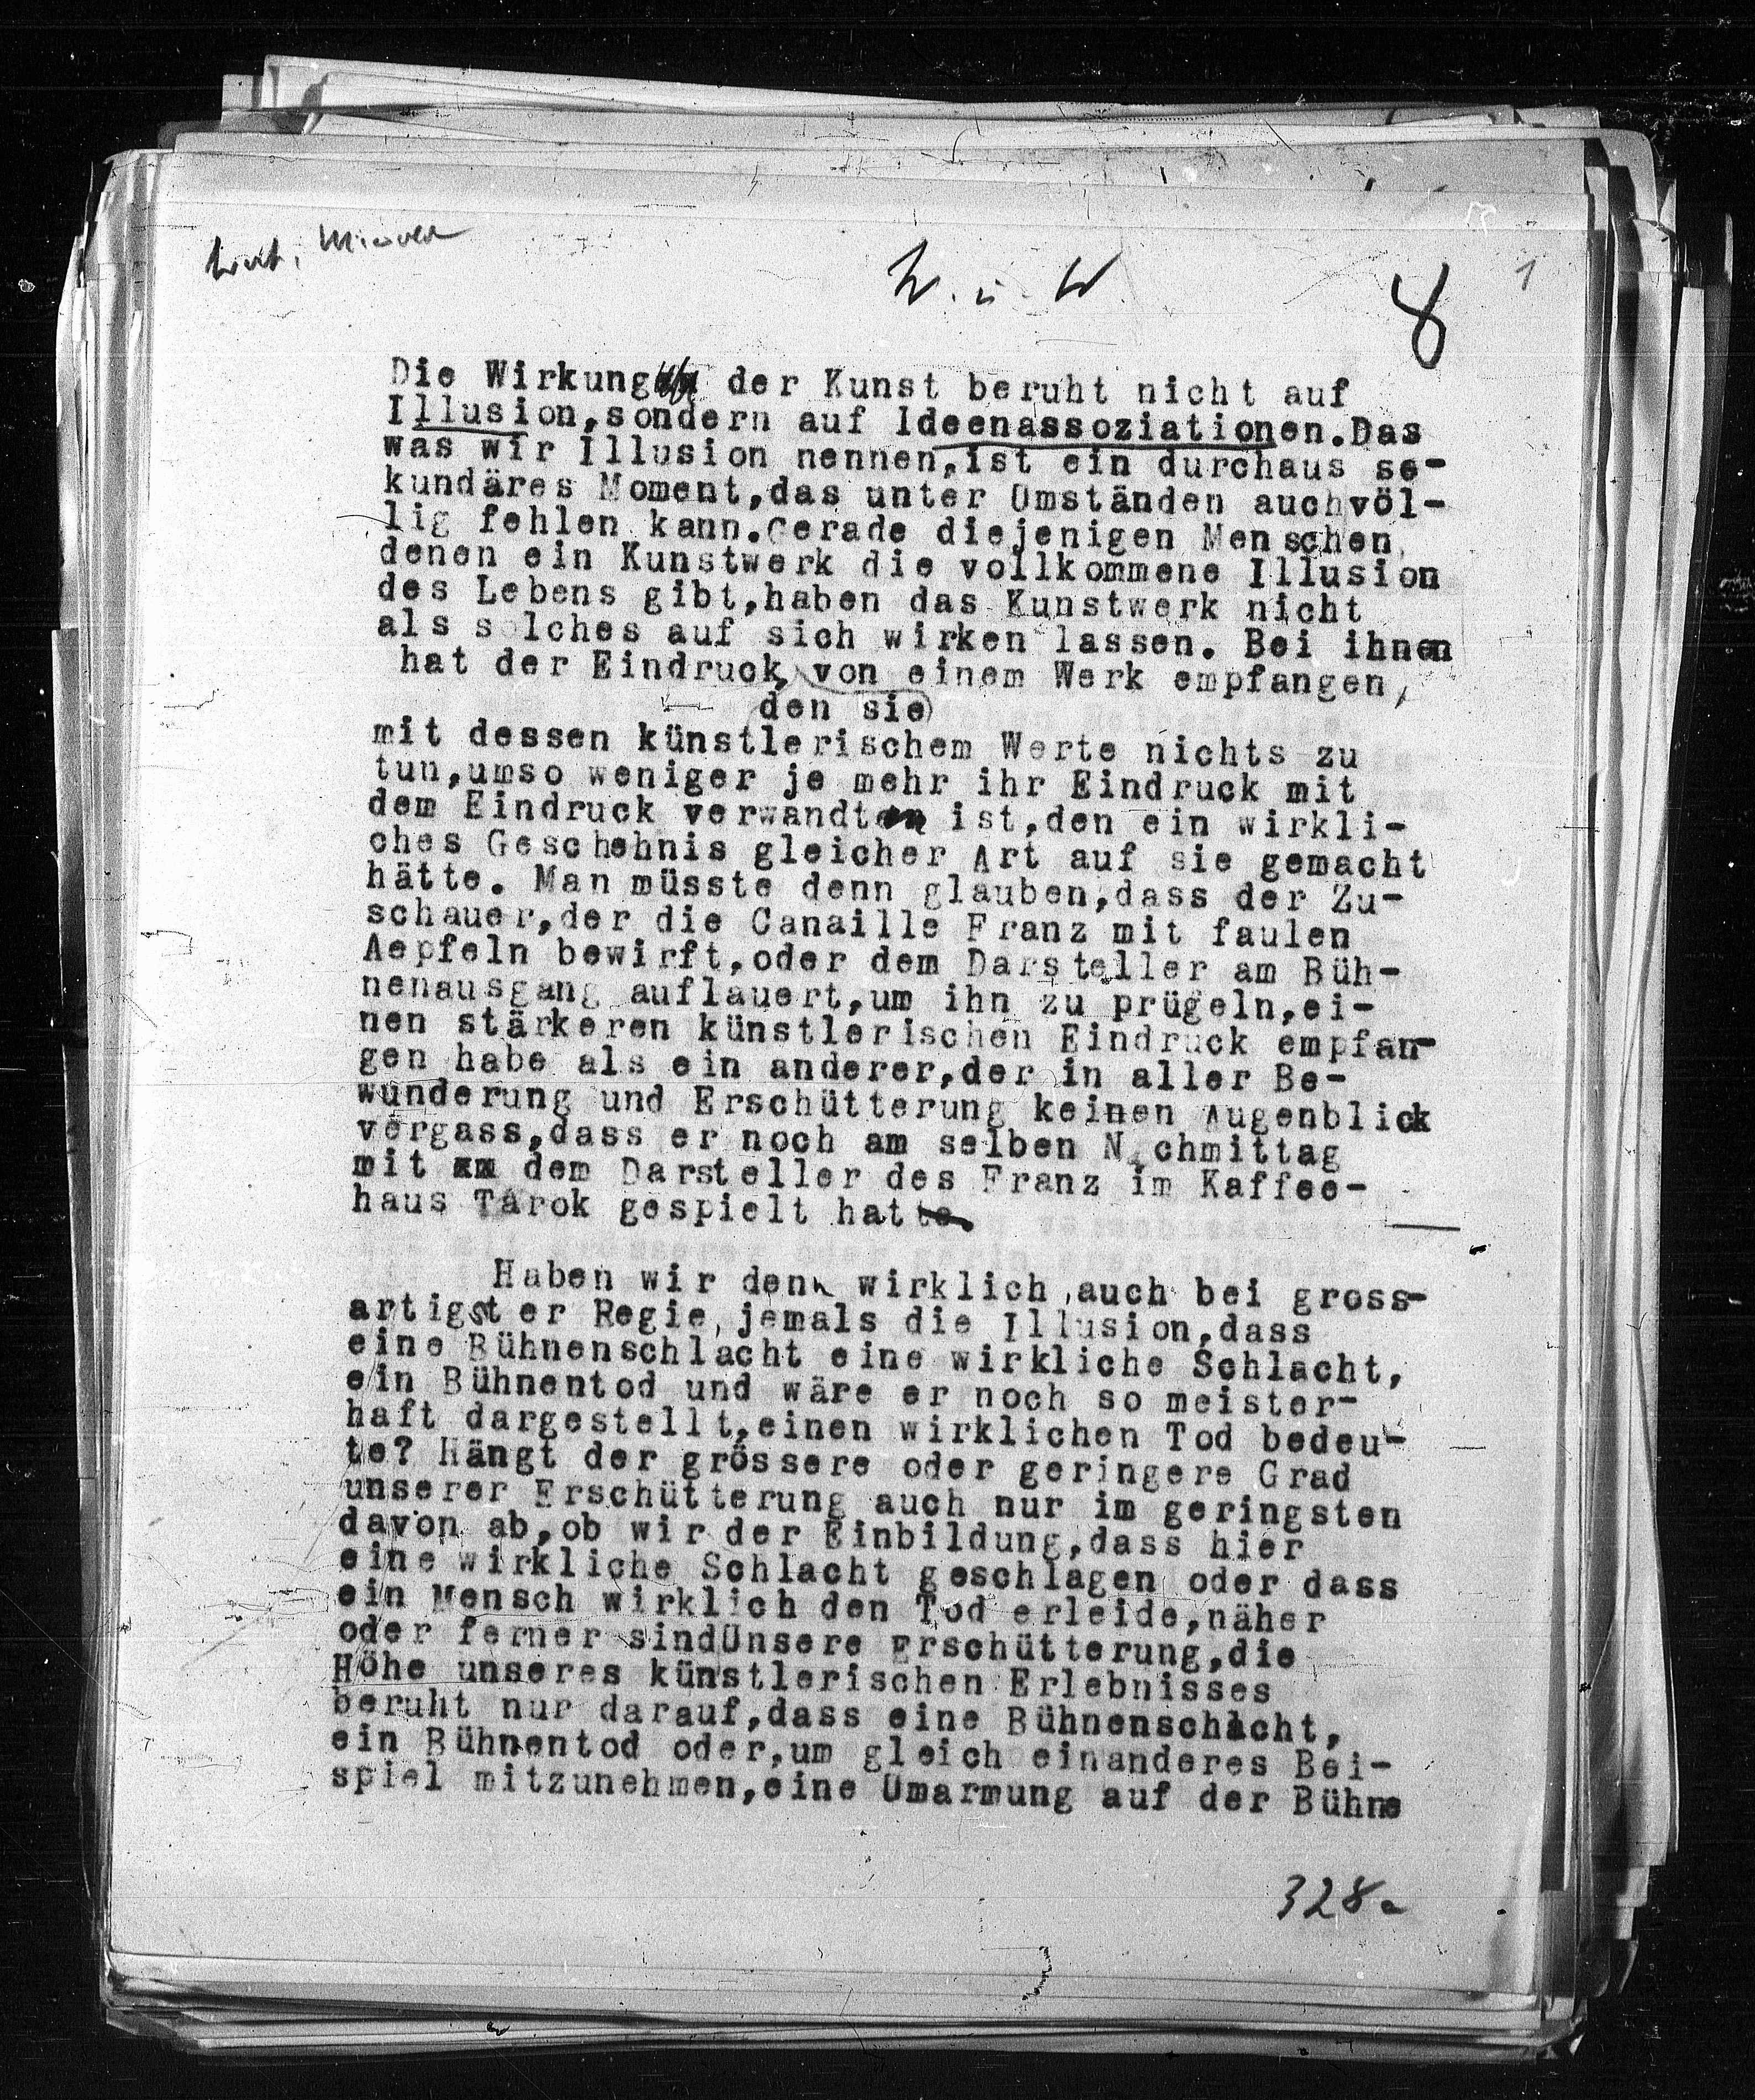 W. u. W.
8
1
Die Wirkung der Kunst beruht nicht auf
Illusion,sondern auf Ideenassoziationen.Das
was wir Illusion nennen,ist ein durchaus se-
kundäres Moment,das unter Umständen auchvöl-
lig fehlen kann.Gerade diejenigen Menschen,
denen ein Kunstwerk die vollkommene Illusion
des Lebens gibt,haben das Kunstwerk nicht
als solches auf sich wirken lassen. Bei ihnen
hat der Eindruck, von einem Werk empfangen,
den sie
mit dessen künstlerischem Werte nichts zu
tun,umso weniger je mehr ihr Eindruck mit
dem Eindruck verwandt ist,den ein wirkli-
ches Geschehnis gleicher Art auf sie gemacht
hätte. Man müsste denn glauben,dass der Zu-
schauer,der die Canaille Franz mit faulen
Aepfeln bewirft,oder dem Darsteller am Büh-
nenausgang auflauert,um ihn zu prügeln,ei-
nen stärkeren künstlerischen Eindruck empfan-
gen habe als ein anderer,der in aller Be-
wunderung und Erschütterung keinen Augenblick
vergass,dass er noch am selben N chmittag
mit dem Darsteller des Franz im Kaffee-
haus Tarok gespielt hatte.
Haben wir denn wirklich,auch bei gross-
artigster Regie,jemals die Illusion,dass
eine Bühnenschlacht eine wirkliche Schlacht,
ein Bühnentod und wäre er noch so meister-
haft dargestellt,einen wirklichen Tod bedeu-
te? Hängt der grössere oder geringere Grad
unserer Erschütterung auch nur im geringsten
davon ab,ob wir der Einbildung,dass hier
eine wirkliche Schlacht geschlagen oder dass
ein Mensch wirklich den Tod erleide,näher
oder ferner sindUnsere Erschütterung,die
Höhe unseres künstlerischen Erlebnisses
beruht nur darauf,dass eine Bühnenschlacht,
ein Bühnentod oder,um gleich einanderes Bei-
spiel mitzunehmen,eine Umarmung auf der Bühne
328a